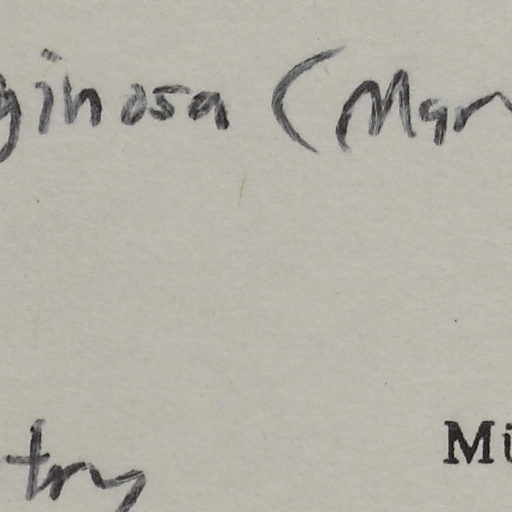 ginosa (Mar
try Mi